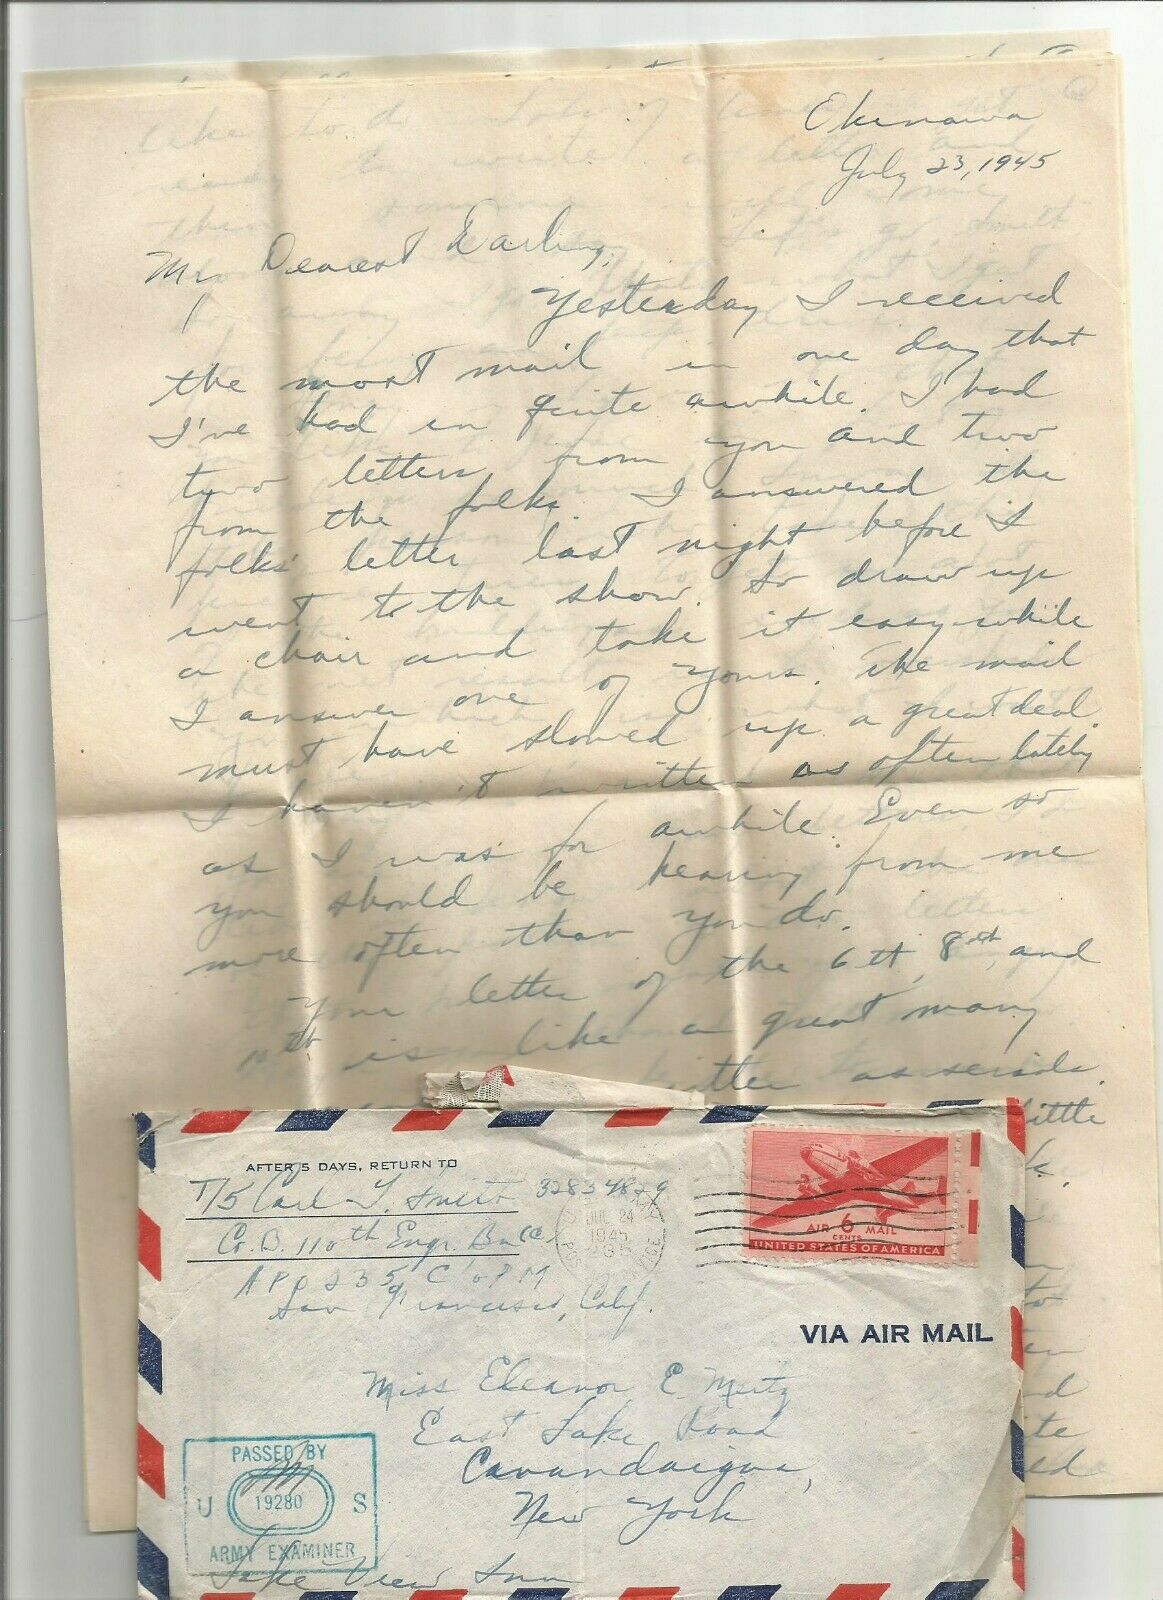 Okinawa
July 23, 1945
My Dearest Darling,
Yesterday I received
the most mail in one day that
I've had in quite awhile. I had
two letters from you and two
from the folks. I answered the
folks' letter last night before I
went to the show. So draw up
a chair and take it easy while
I answer one of yours. The mail
must have slowed up a great deal.
I haven't written as often lately
as I was for awhile. Even so
you should be hearing from me
more often than you do.
Your letter of the 6th, 8th, and
10th is like a great many
as serials.
little
AFTER 5 DAYS, RETURN TO
T/5 Carl L. Smith 32834829
Co. B. 110th Engr. Bn (C)
APO 235 C/O PM
San Francisco, Calif.
JUL 24
1945
AIR 6 MAIL
CENTS
UNITED STATES OF AMERICA
VIA AIR MAIL
Miss Eleanor E. Meitz
East Lake Road
Canandaigua,
New York
PASSED BY
U 19280 S
ARMY EXAMINER
Lake View Inn